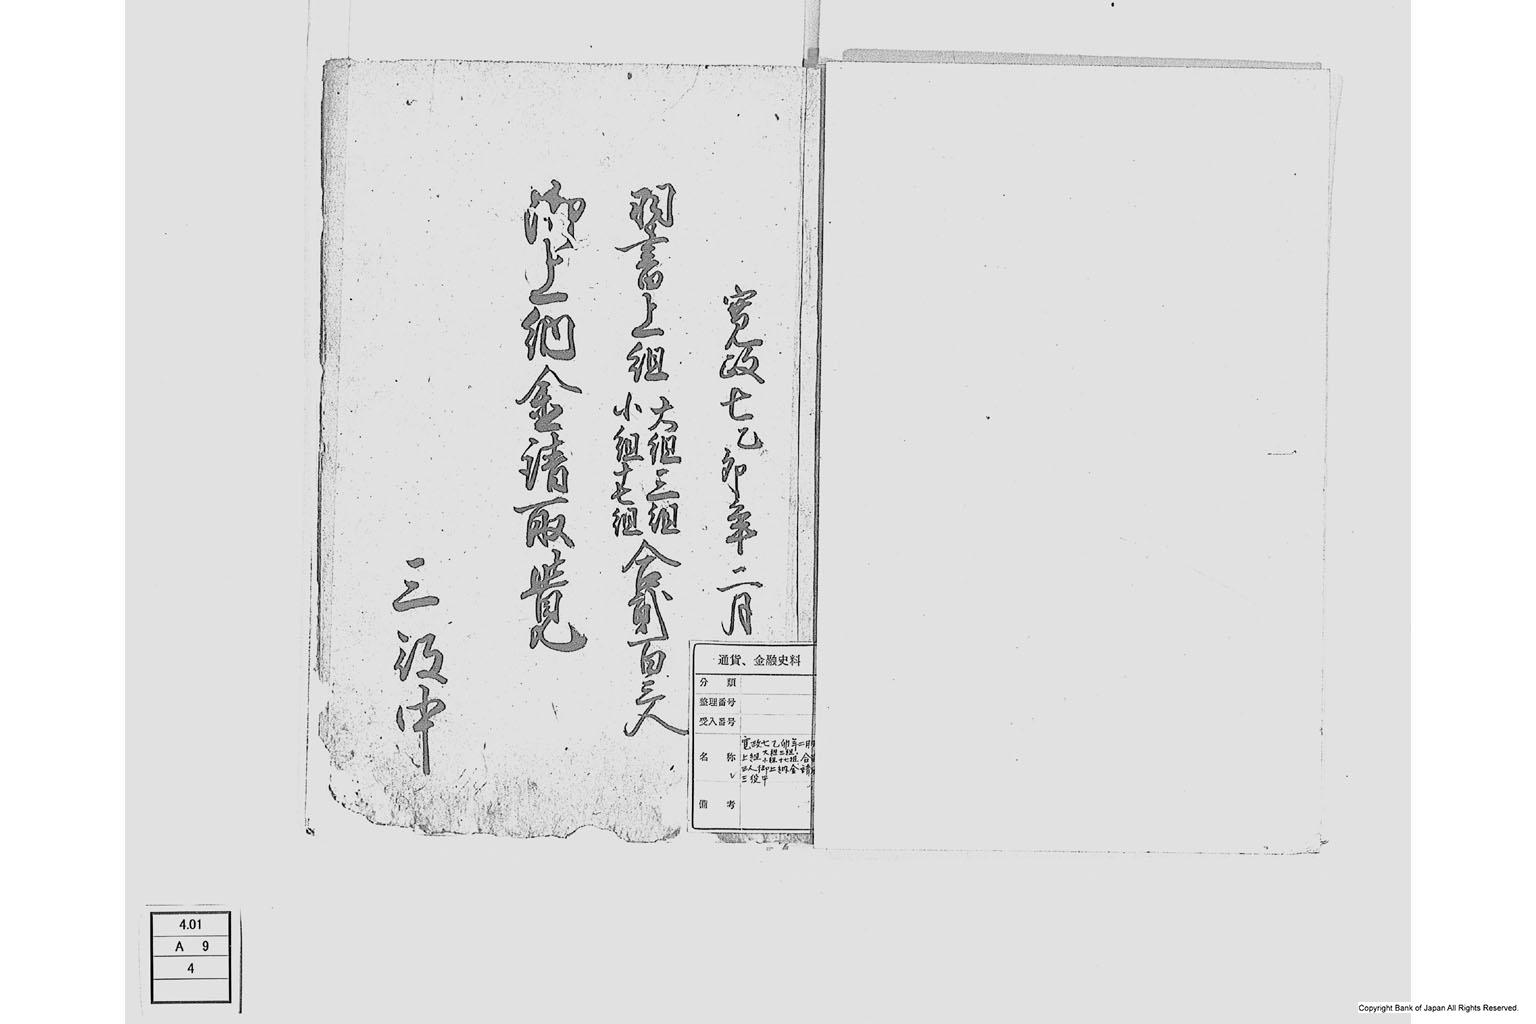 寛政七乙卯年二月
羽書上組
大組三組
小組十七組
合貳百三人
御上納金請取覺
三役中
通貨、金融史料
分類
整理番号
受入番号
名称
寛政七乙卯年二月
上組 大組三組 小組十七組 合
三人御上納金請
三役中
備考
4.01
A 9
4
Copyright Bank of Japan All Rights Reserved.